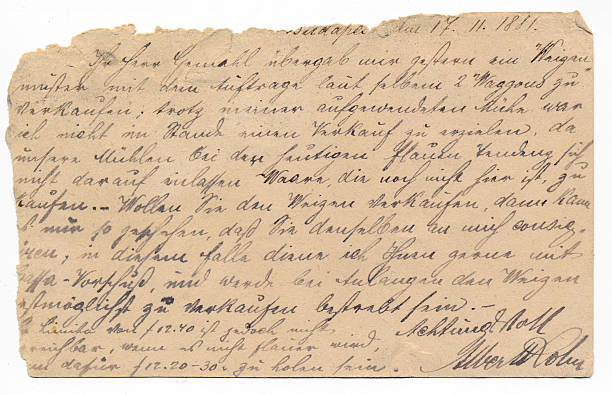 Budapest, den 17. 11. 1881.
Ihr Herr Gemahl übergab mir gestern ein Weizen
muster mit dem Auftrage laut selbem 2 Waggons zu
verkaufen; trotz meiner aufgewendeten Mühe war
ich nicht im Stande einen Verkauf zu erzielen, da
unsere Mühlen bei der heutigen flauen Tendenz sich
nicht darauf einlassen Waare, die noch nicht hier ist, zu
kaufen. — Wollen Sie den Weizen verkaufen, dann kann
es nur so geschehen, daß Sie denselben an mich consig-
iren; in diesem Falle diene ich Ihnen gerne mit
assa-Vorschuß, und werde bei Anlangen den Weizen
estmöglichst zu verkaufen bestrebt sein. —
Limite von f 12.40 ist jedoch nicht
reichbar, wenn es nicht flauer wird
dafür f 12.20-30. zu holen sein.
Achtungsvoll
Albert